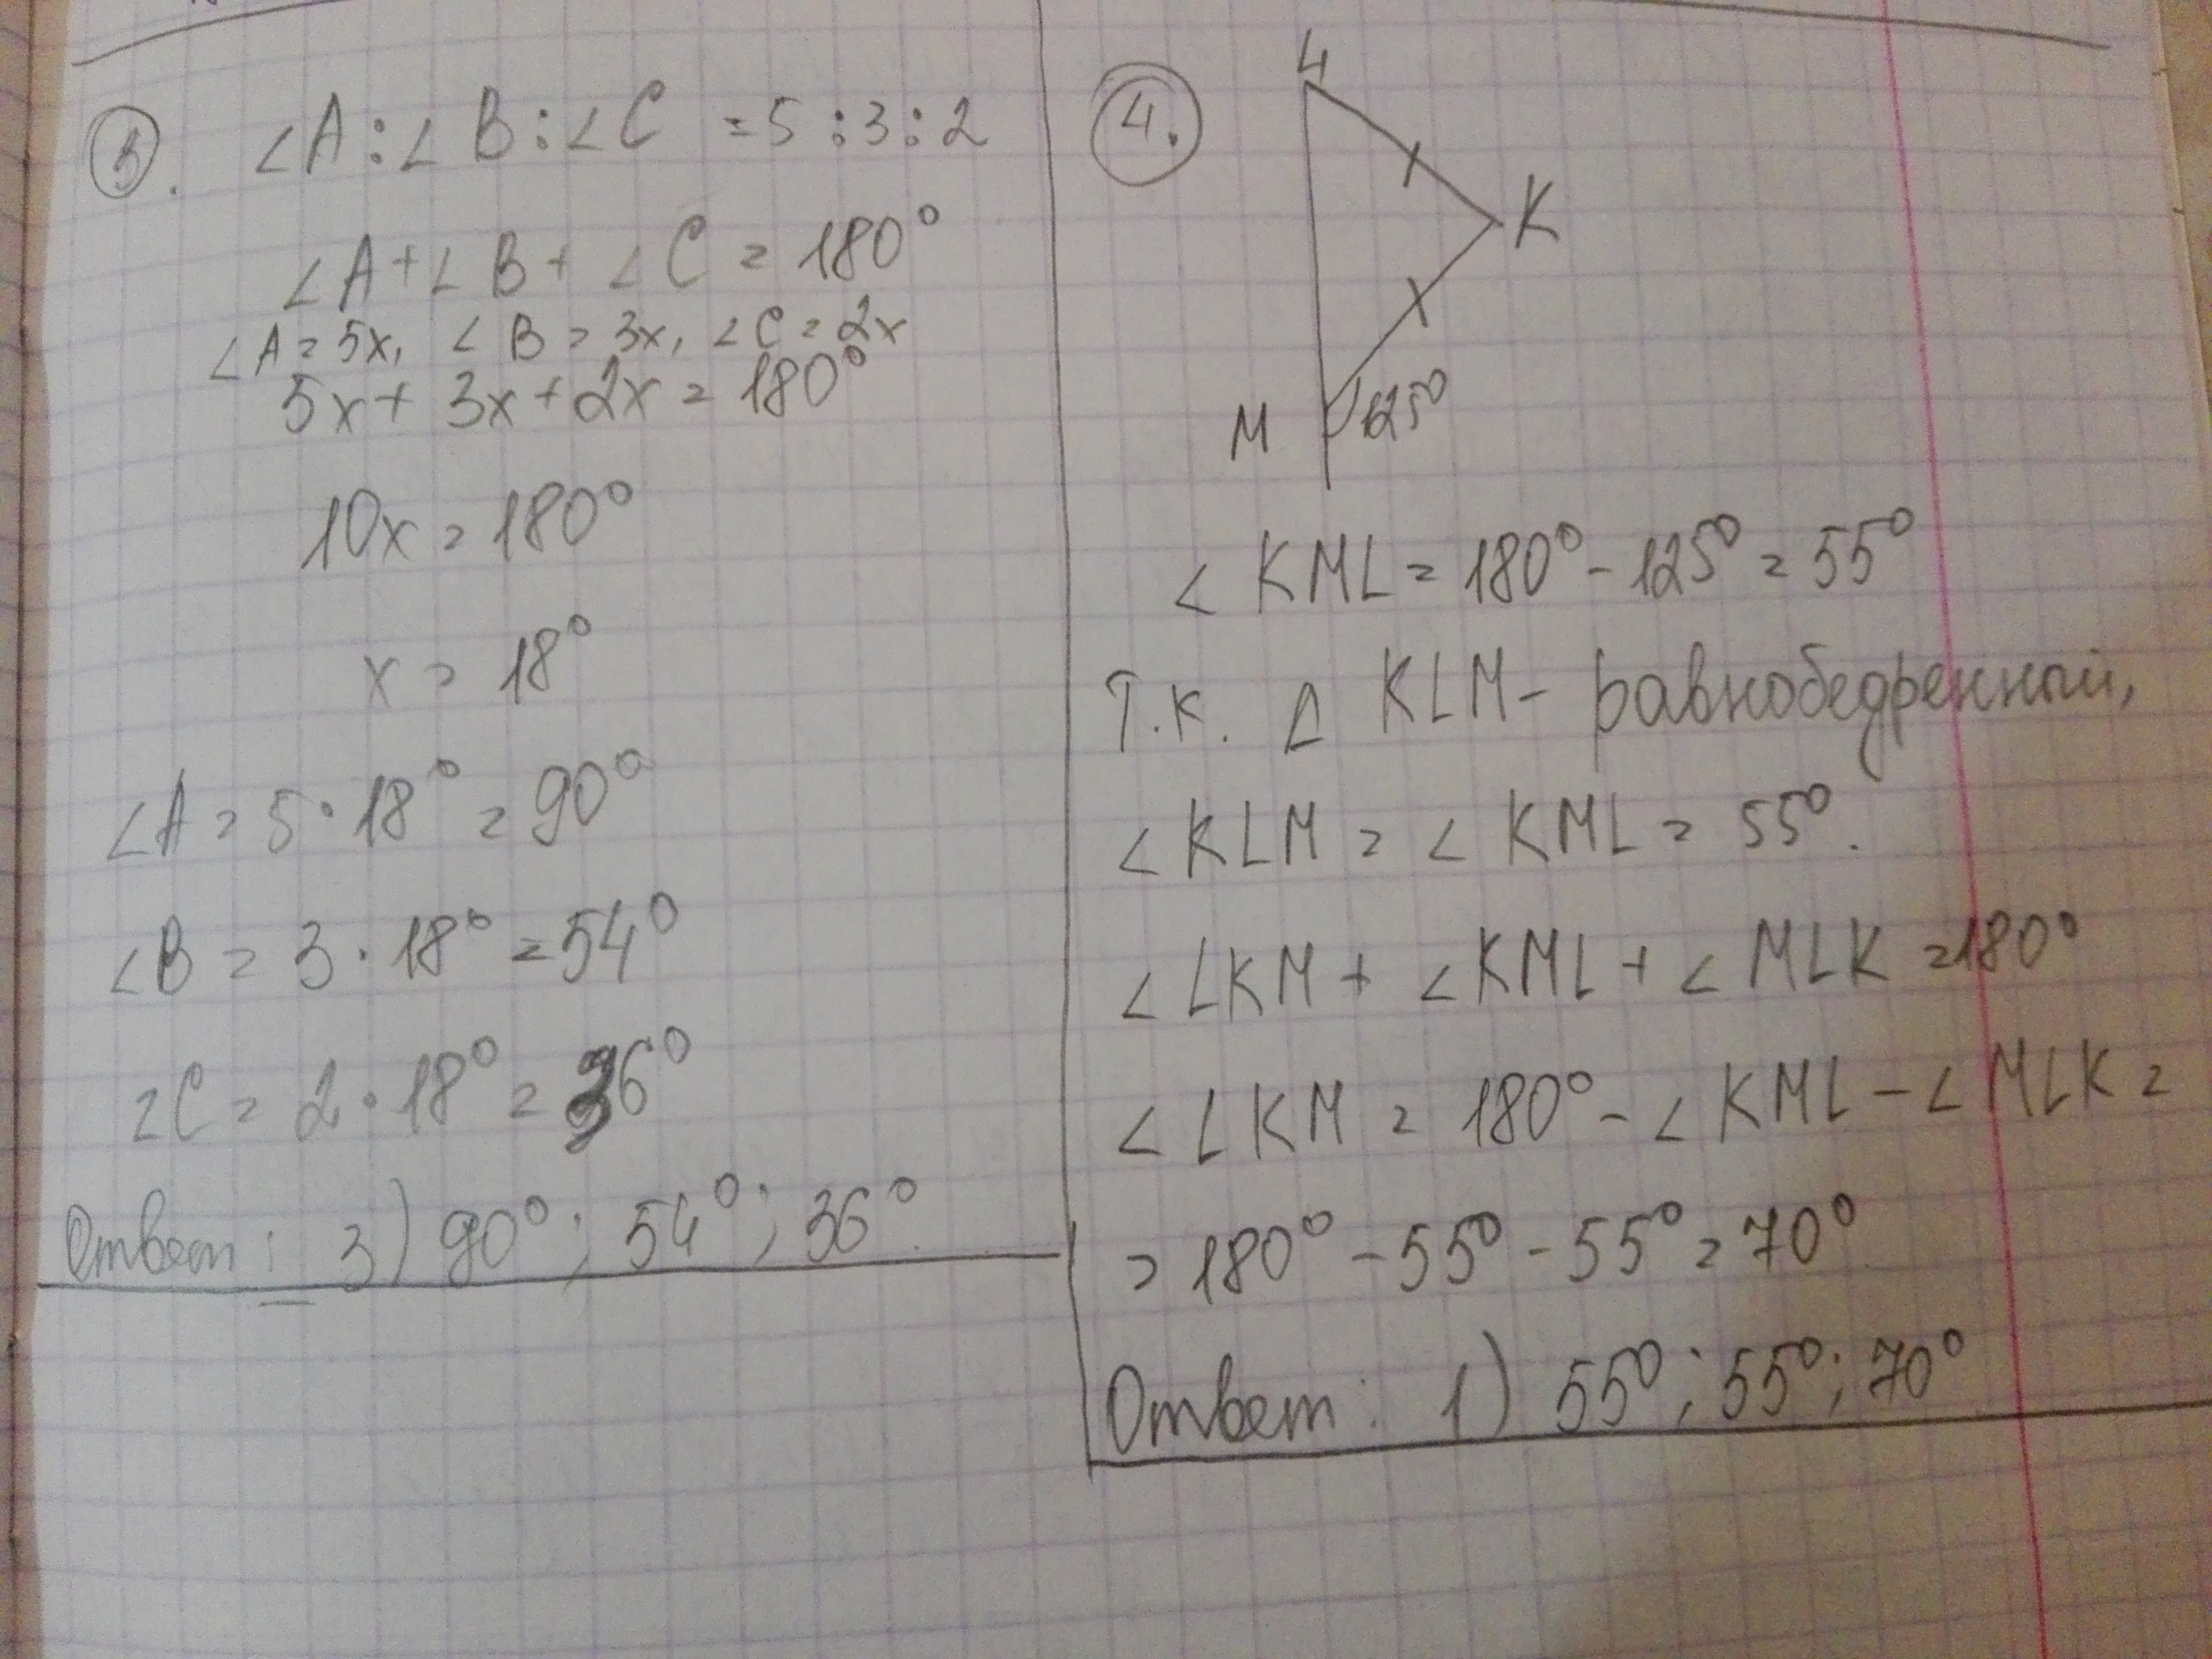 3. ∠A:∠B:∠C = 5:3:2
∠A+∠B+∠C = 180°
∠A = 5x, ∠B = 3x, ∠C = 2x
5x + 3x + 2x = 180°
10x = 180°
x = 18°
∠A = 5·18° = 90°
∠B = 3·18° = 54°
∠C = 2·18° = 36°
Ответ: 3) 90°; 54°; 36°.
4.
L
K
M
125°
∠KML = 180° - 125° = 55°
Т.к. Δ KLM - равнобедренный,
∠KLM = ∠KML = 55°.
∠LKM + ∠KML + ∠MLK = 180°
∠LKM = 180° - ∠KML - ∠MLK =
= 180° - 55° - 55° = 70°
Ответ: 1) 55°; 55°; 70°